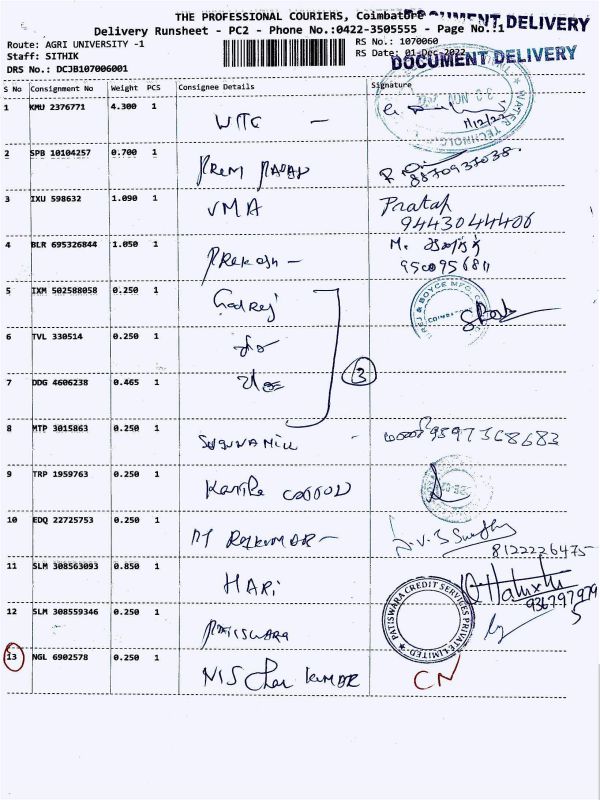 THE PROFESSIONAL COURIERS, Coimbatore
DOCUMENT DELIVERY
Delivery Runsheet - PC2 - Phone No.:0422-3505555 - Page No.:1
Route: AGRI UNIVERSITY -1
RS No.: 1070060
Staff: SITHIK
RS Date: 01-Dec-2022
DOCUMENT DELIVERY
DRS No.: DCJB107006001
S No Consignment No Weight PCS Consignee Details Signature
1 KMU 2376771 4.300 1 WTC -
2 SPB 10104257 0.700 1 PREM
8870937038
3 IXU 598632 1.090 1 VMA Pratap
9443044406
4 BLR 695326844 1.050 1 Prakash - M.
9500956811
5 IXM 502588058 0.250 1 Godrej
COIMBATORE
6 TVL 330514 0.250 1
7 DDG 4606238 0.465 1
3
8 MTP 3015863 0.250 1 Suguna Mill - 9597368683
9 TRP 1959763 0.250 1
10 EDQ 22725753 0.250 1 M RAJKUMAR -
8122226475
11 SLM 308563093 0.850 1 HARI
936797979
12 SLM 308559346 0.250 1 PATISWARA
PATISWARA CREDIT SERVICES PRIVATE LIMITED
13 NGL 6902578 0.250 1 KUMAR CN